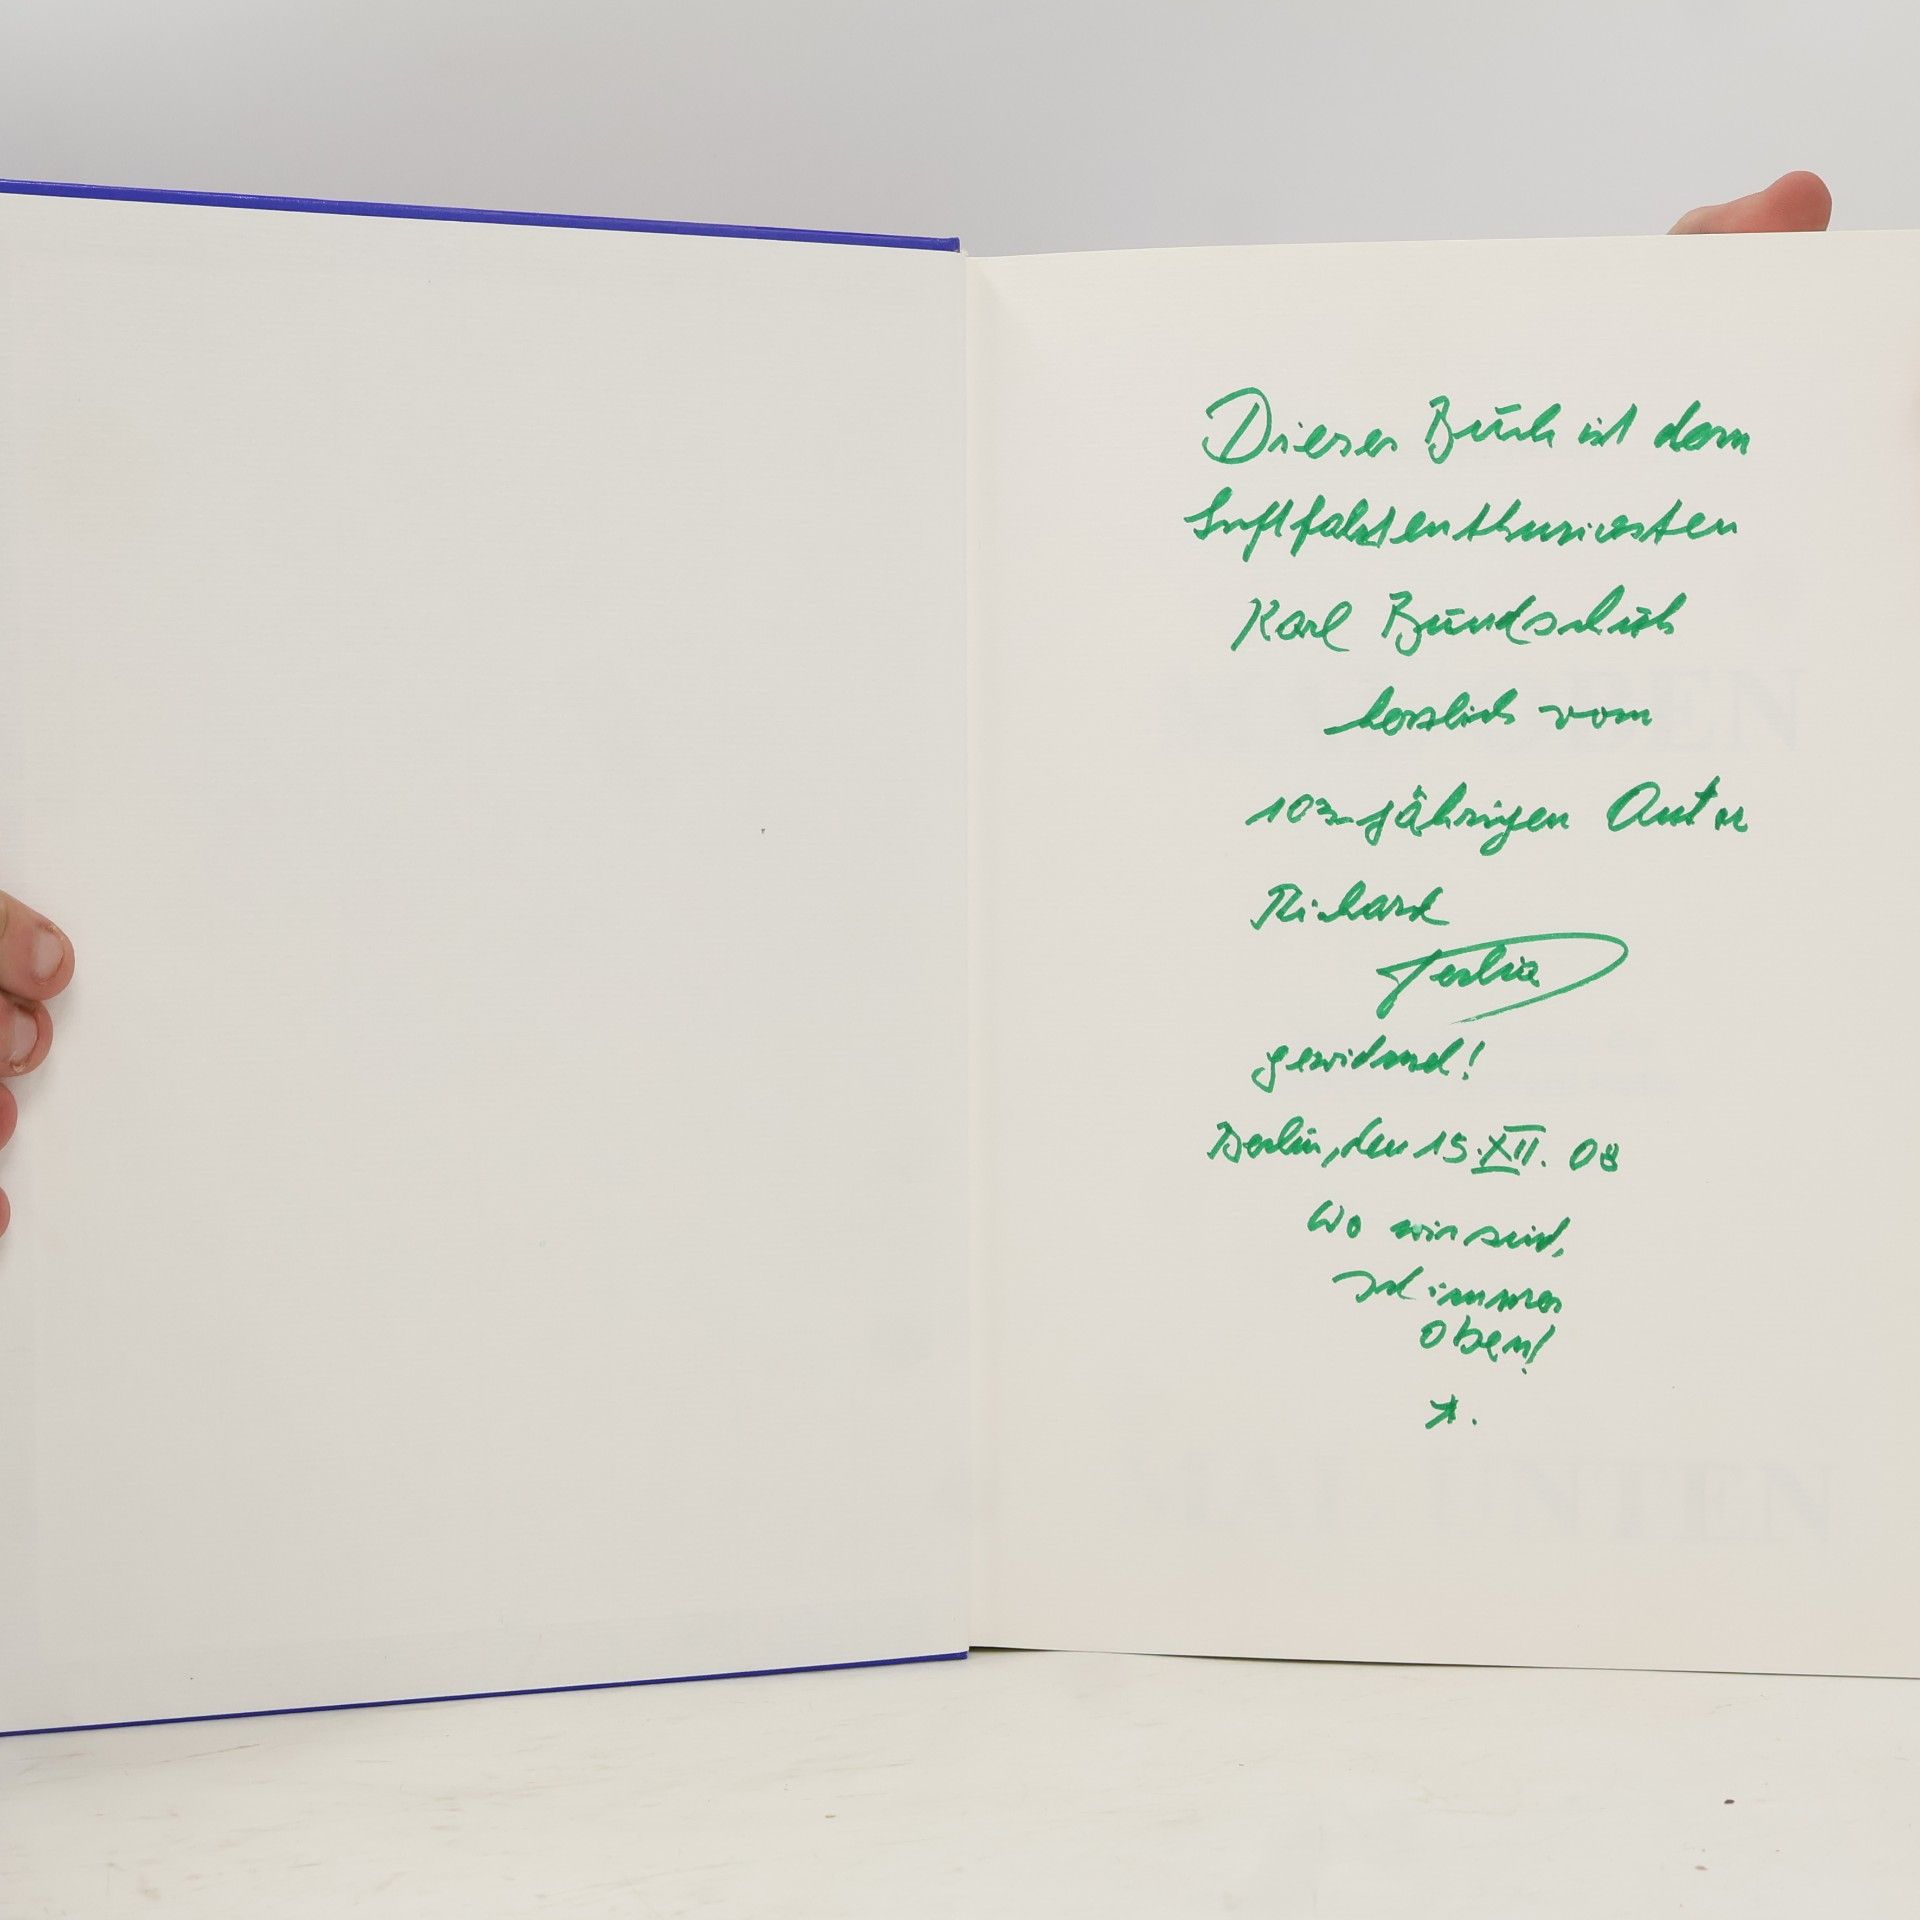 Dieses Buch ist dem
Luftfahrtenthusiasten
Karl Bundschuh
herzlich vom
103-jährigen Autor
Richard
gewidmet!
Berlin, den 15.XII. 08
Wo wir sind,
ist immer
oben!
*.